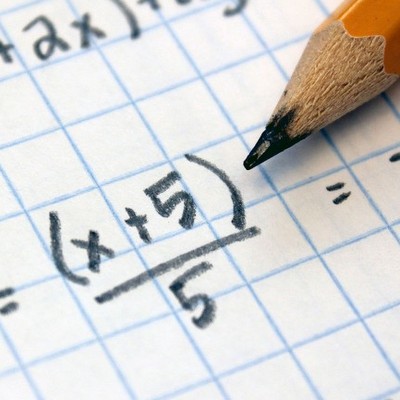 +2x)+
= (x+5)/5 =